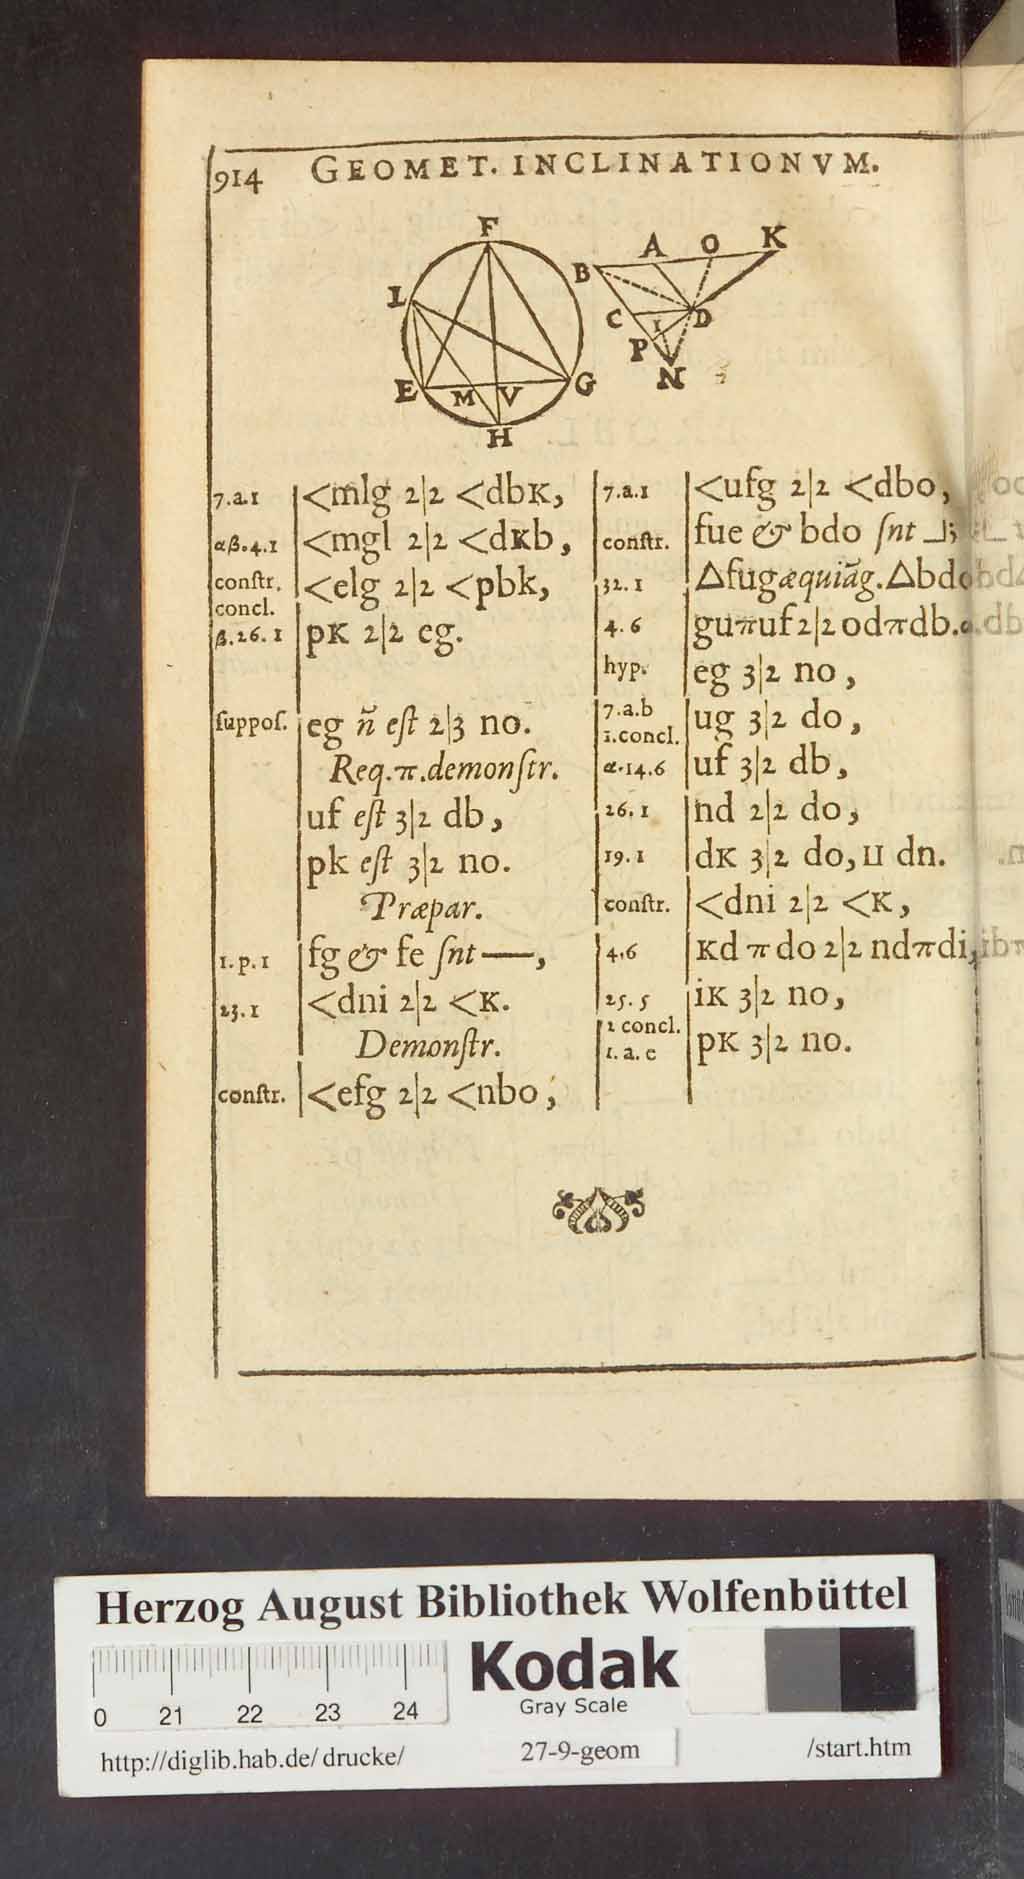 914 GEOMET. INCLINATIONVM.
F
L
E M V G
H
A O K
B
C I D
P
N
7.a.1 <mlg 2|2 <dbK,
αβ.4.1 <mgl 2|2 <dKb,
constr. concl. <elg 2|2 <pbk,
β.26.1 pK 2|2 eg.
suppos. eg n̄ est 2|3 no.
Req.π.demonstr.
uf est 3|2 db,
pk est 3|2 no.
Præpar.
1.p.1 fg & fe snt —,
23.1 <dni 2|2 <K.
Demonstr.
constr. <efg 2|2 <nbo,
7.a.1 <ufg 2|2 <dbo,
constr. fue & bdo snt ⅃;
32.1 △fug æquiāg. △bdo
4.6 guπuf 2|2 odπdb.α.
hyp. eg 3|2 no,
7.a.b 1.concl. ug 3|2 do,
α.14.6 uf 3|2 db,
26.1 nd 2|2 do,
19.1 dK 3|2 do, U dn.
constr. <dni 2|2 <K,
4.6 Kd π do 2|2 ndπdi,
25.5 iK 3|2 no,
2 concl. 1.a.e pK 3|2 no.
Herzog August Bibliothek Wolfenbüttel
Kodak
Gray Scale
0 21 22 23 24
http://diglib.hab.de/drucke/ 27-9-geom /start.htm